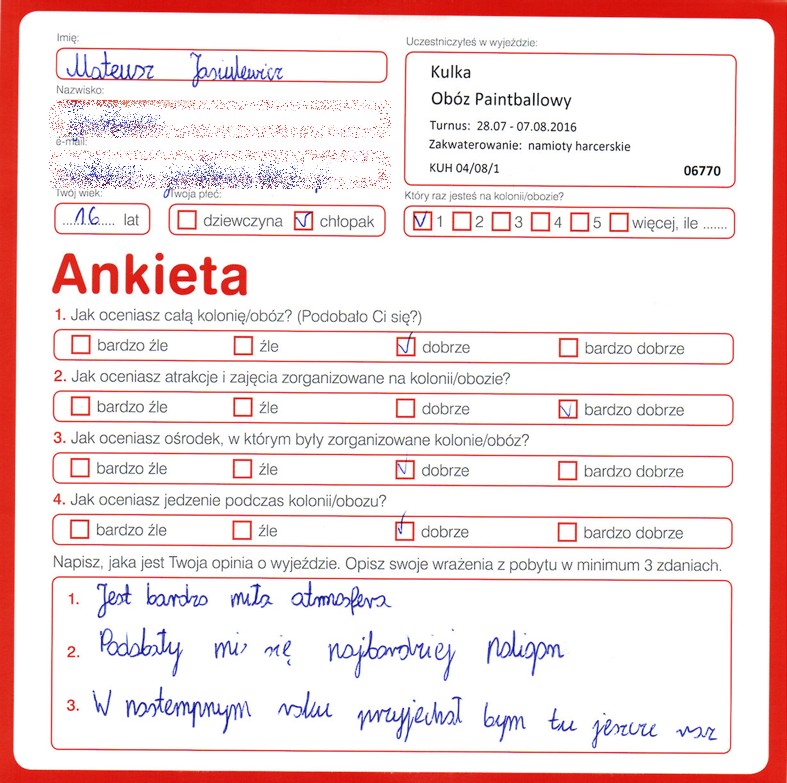 Imię:
Mateusz Jasiulewicz
Nazwisko:
e-mail:
Twój wiek:
16 lat
Twoja płeć:
dziewczyna chłopak
Uczestniczyłeś w wyjeździe:
Kulka
Obóz Paintballowy
Turnus: 28.07 - 07.08.2016
Zakwaterowanie: namioty harcerskie
KUH 04/08/1 06770
Który raz jesteś na kolonii/obozie?
1 2 3 4 5 więcej, ile .......
Ankieta
1. Jak oceniasz całą kolonię/obóz? (Podobało Ci się?)
bardzo źle źle dobrze bardzo dobrze
2. Jak oceniasz atrakcje i zajęcia zorganizowane na kolonii/obozie?
bardzo źle źle dobrze bardzo dobrze
3. Jak oceniasz ośrodek, w którym były zorganizowane kolonie/obóz?
bardzo źle źle dobrze bardzo dobrze
4. Jak oceniasz jedzenie podczas kolonii/obozu?
bardzo źle źle dobrze bardzo dobrze
Napisz, jaka jest Twoja opinia o wyjeździe. Opisz swoje wrażenia z pobytu w minimum 3 zdaniach.
1. Jest bardzo miła atmosfera
2. Podobały mi się najbardziej
3. W nastempnym roku przyjechał bym tu jeszcze raz